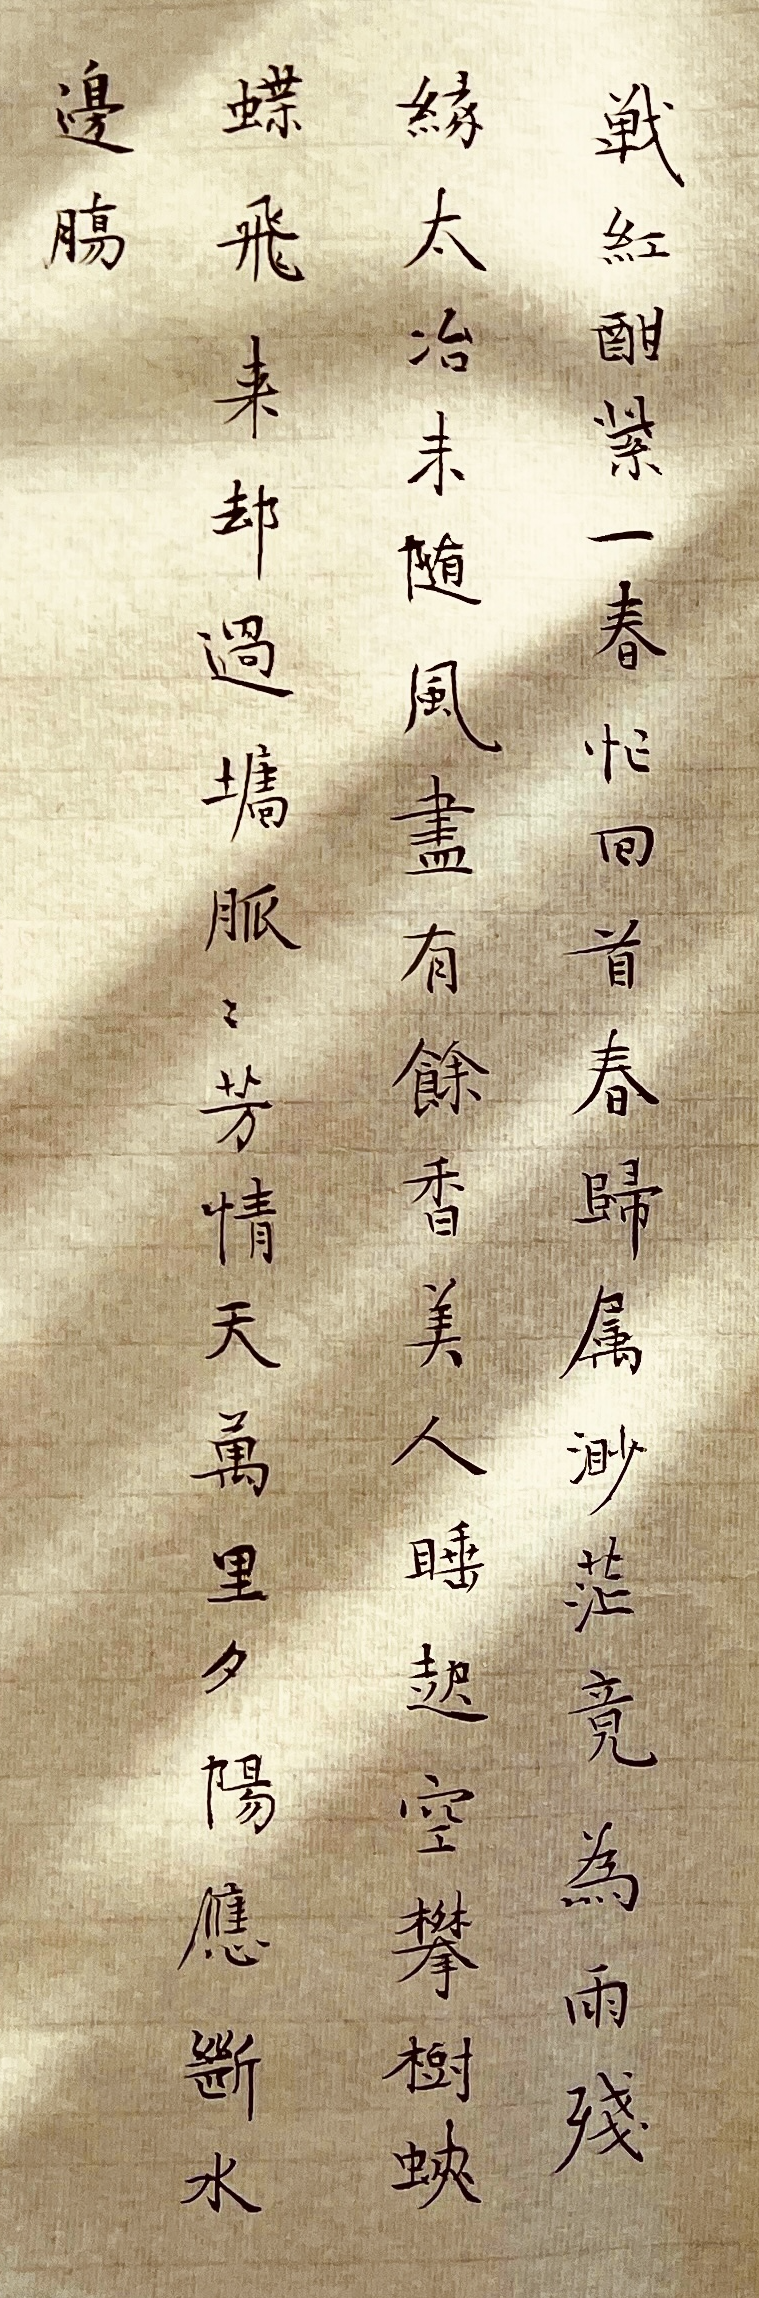 戦紅酣紫一春忙回首春歸属渺茫竟為雨殘
緣太冶未随風盡有餘香美人睡起空攀樹蛺
蝶飛来却過墻脈〻芳情天萬里夕陽應斷水
邊腸